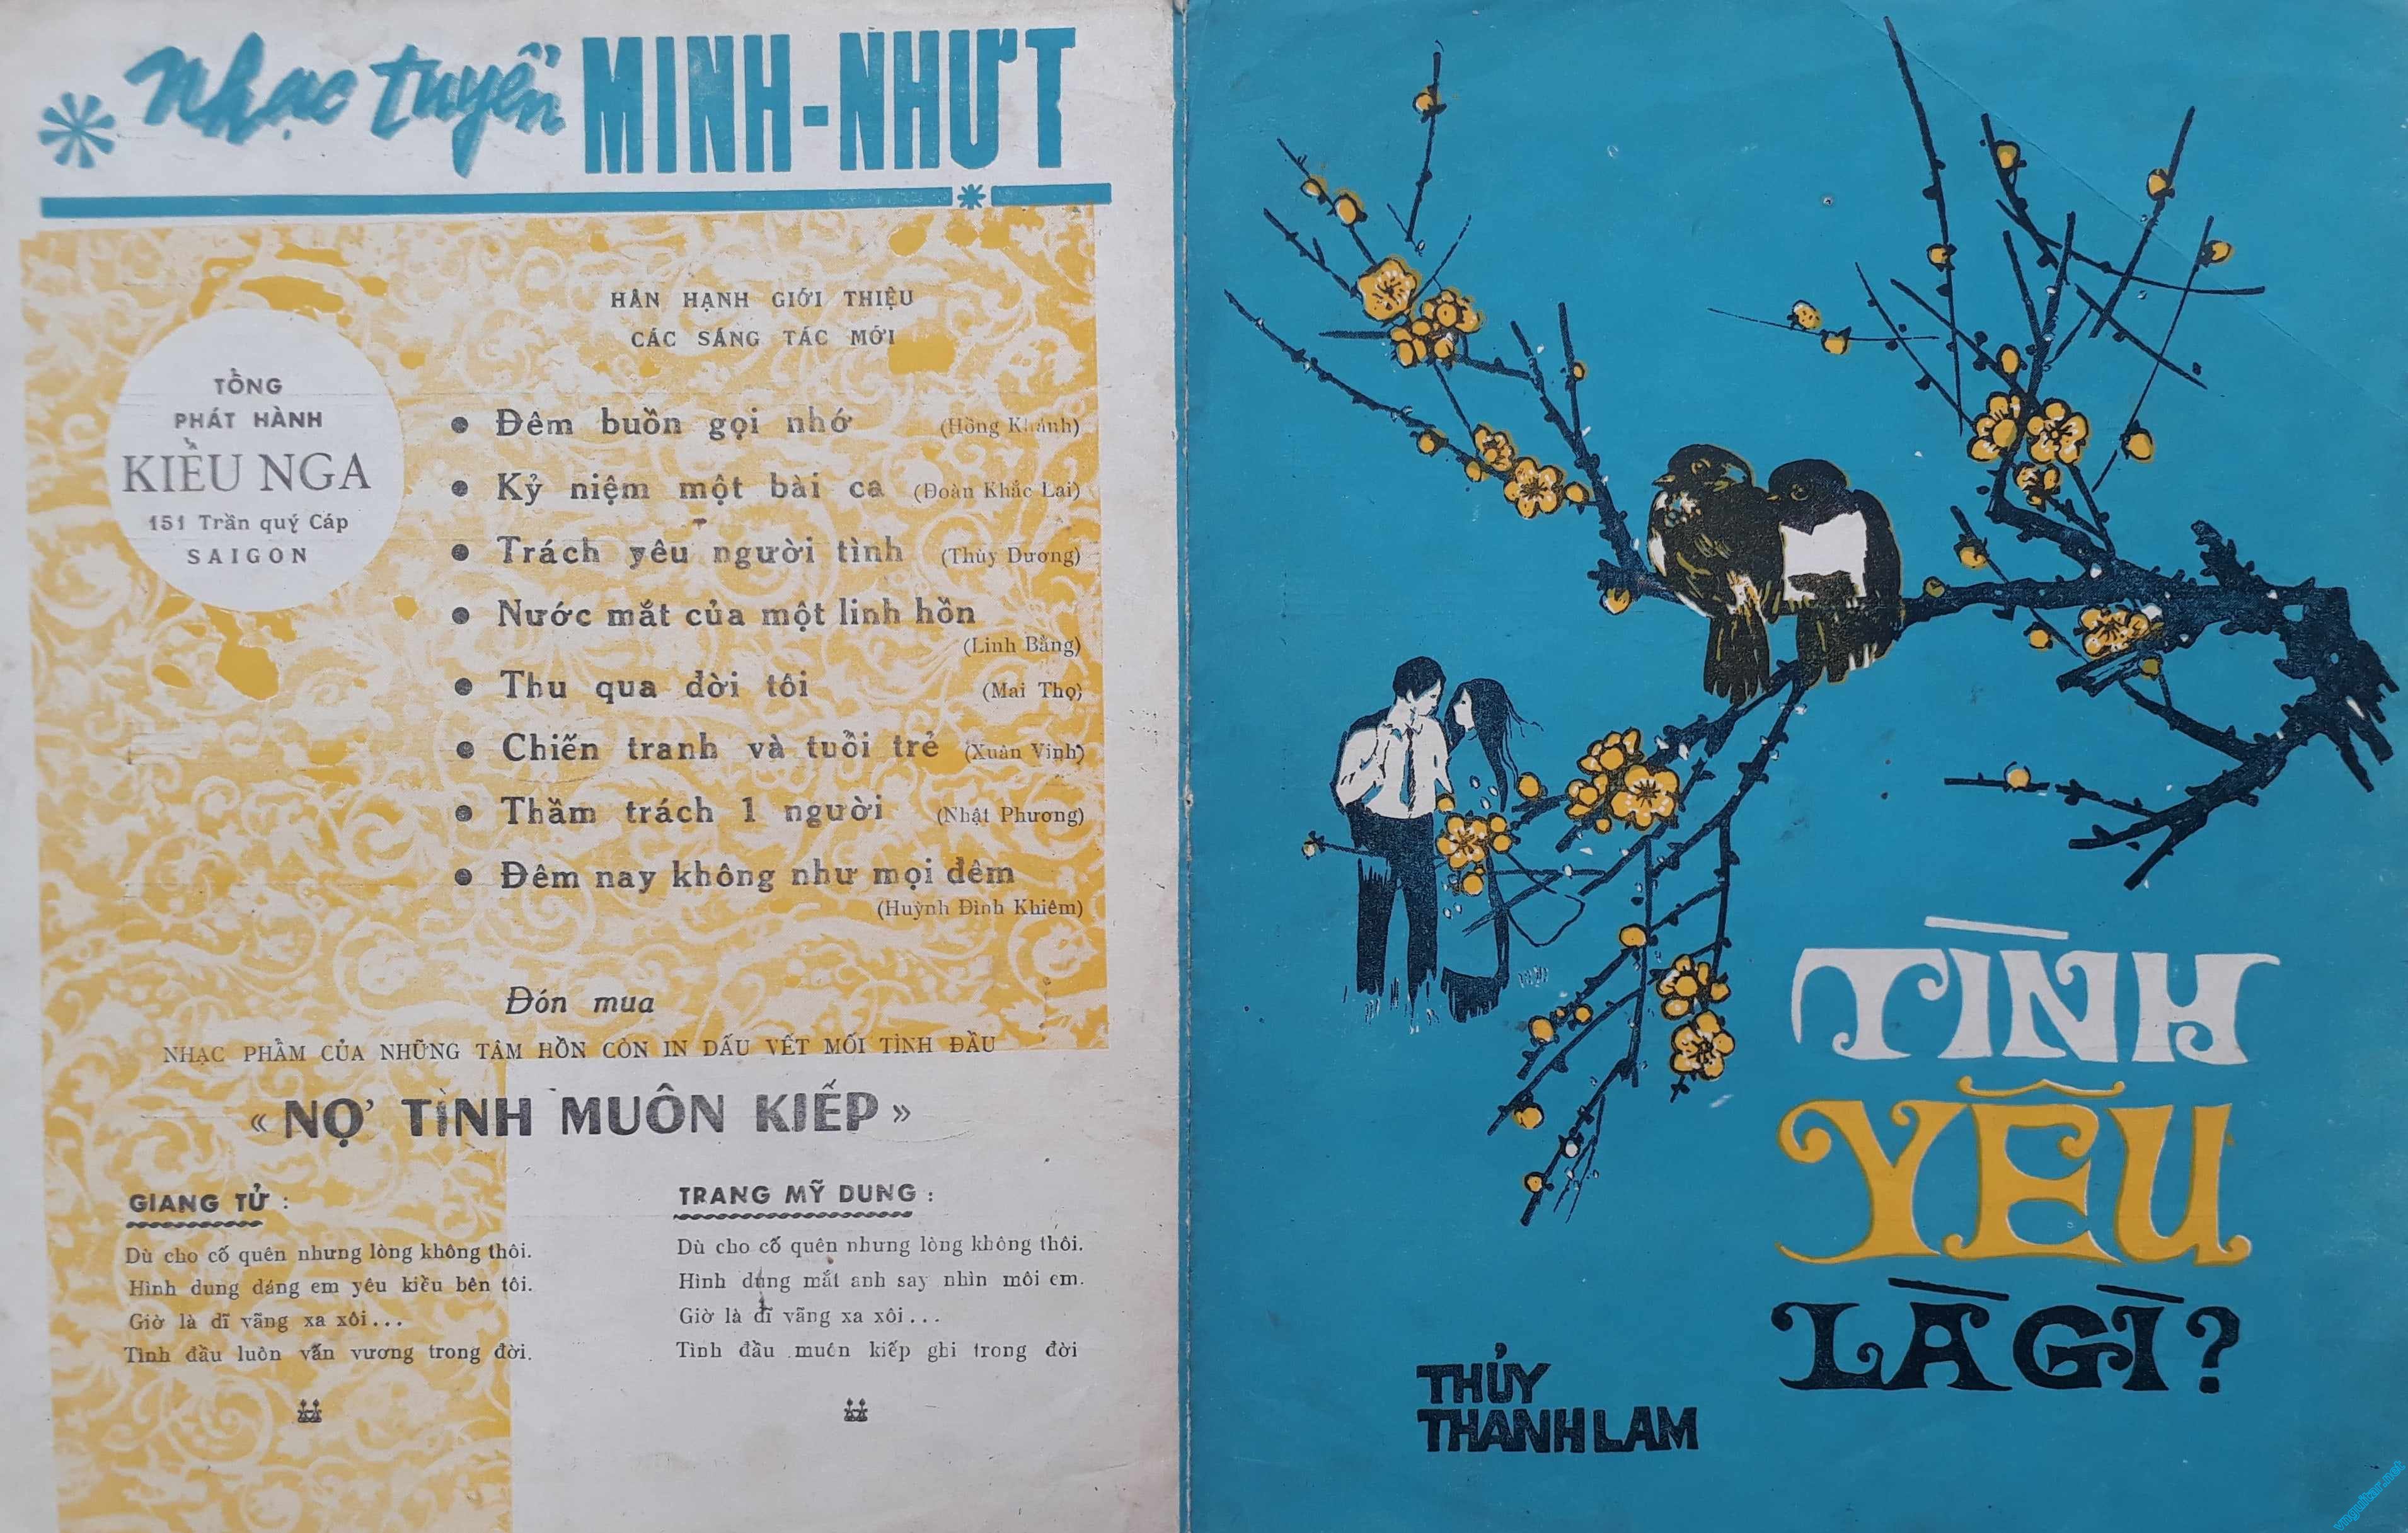 Nhạc tuyển MINH-NHỰT
HÂN HẠNH GIỚI THIỆU
CÁC SÁNG TÁC MỚI
TỔNG
PHÁT HÀNH
KIỀU NGA
151 Trần quý Cáp
SAIGON
● Đêm buồn gọi nhớ (Hồng Khánh)
● Kỷ niệm một bài ca (Đoàn Khắc Lai)
● Trách yêu người tình (Thùy Dương)
● Nước mắt của một linh hồn
(Linh Bằng)
● Thu qua đời tôi (Mai Thọ)
● Chiến tranh và tuổi trẻ (Xuân Vinh)
● Thầm trách 1 người (Nhật Phương)
● Đêm nay không như mọi đêm
(Huỳnh Đình Khiêm)
Đón mua
NHẠC PHẨM CỦA NHỮNG TÂM HỒN CÒN IN DẤU VẾT MỐI TÌNH ĐẦU
« NỢ TÌNH MUÔN KIẾP »
GIANG TỬ :
Dù cho cố quên nhưng lòng không thôi.
Hình dung dáng em yêu kiều bên tôi.
Giờ là dĩ vãng xa xôi...
Tình đầu luôn vẫn vương trong đời.
TRANG MỸ DUNG :
Dù cho cố quên nhưng lòng không thôi.
Hình dung mắt anh say nhìn môi em.
Giờ là dĩ vãng xa xôi...
Tình đầu muôn kiếp ghi trong đời
TÌNH
YÊU
LÀ GÌ?
THỦY
THANH LAM
vnguitar.net